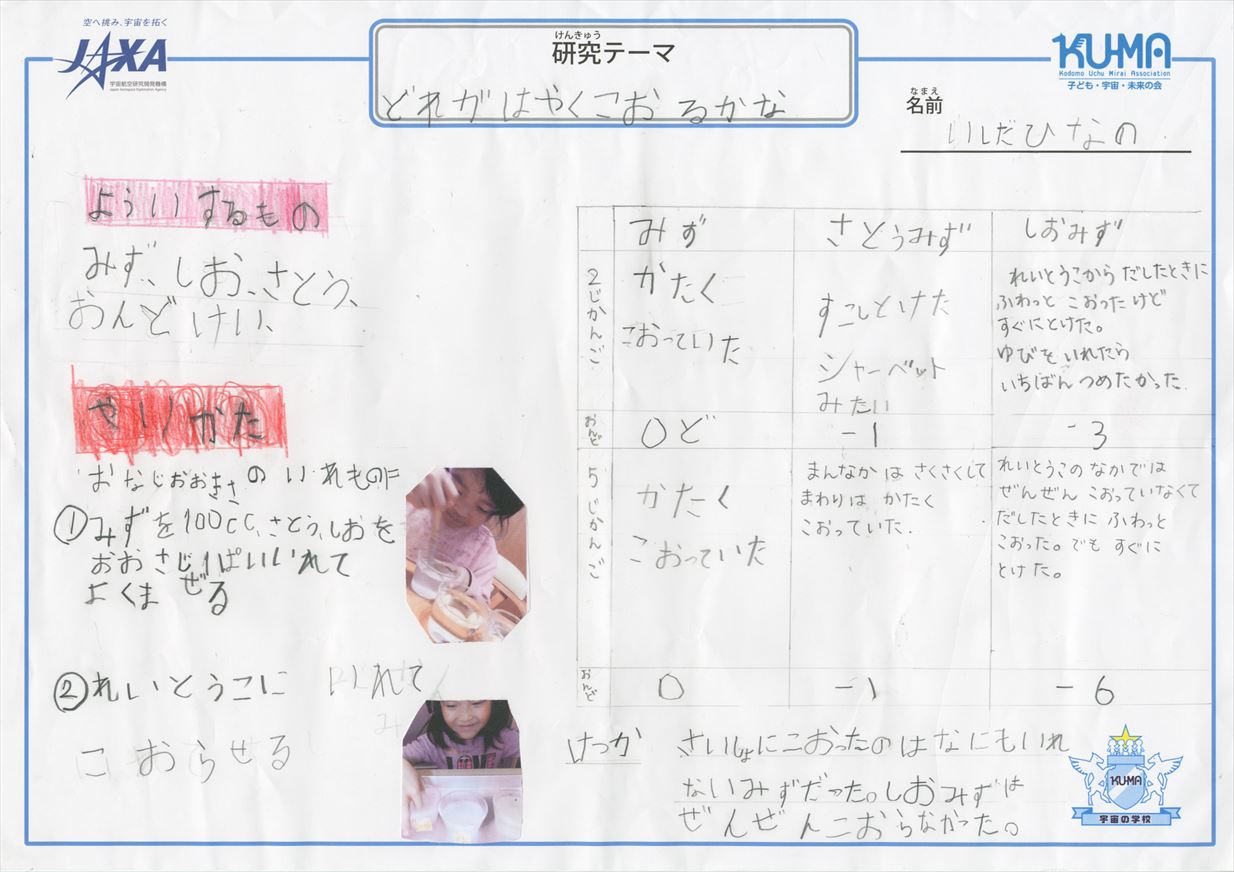 空へ挑み、宇宙を拓く
JAXA
宇宙航空研究開発機構
Japan Aerospace Exploration Agency
けんきゅう
研究テーマ
どれがはやくこおるかな
KU-MA
Kodomo Uchu Mirai Association
子ども・宇宙・未来の会
なまえ
名前
いしだひなの
よういするもの
みず、しお、さとう、
おんどけい、
やりかた
おなじおおきさのいれものに
①みずを100cc、さとう、しおを
おおさじ1ぱいいれて
よくまぜる
②れいとうこに いれて
こおらせる
みず
さとうみず
しおみず
2じかんご
かたく
こおっていた
すこしとけた
シャーベット
みたい
れいとうこから だしたときに
ふわっと こおったけど
すぐにとけた。
ゆびをいれたら
いちばんつめたかった.
おんど
0ど
-1
-3
5じかんご
かたく
こおっていた
まんなかは さくさくして
まわりは かたく
こおっていた.
れいとうこの なかでは
ぜんぜん こおっていなくて
だしたときに ふわっと
こおった。でも すぐに
とけた。
おんど
0
-1
-6
けっか
さいしょにこおったのはなにもいれ
ないみずだった。しおみずは
ぜんぜんこおらなかった。
KUMA
宇宙の学校